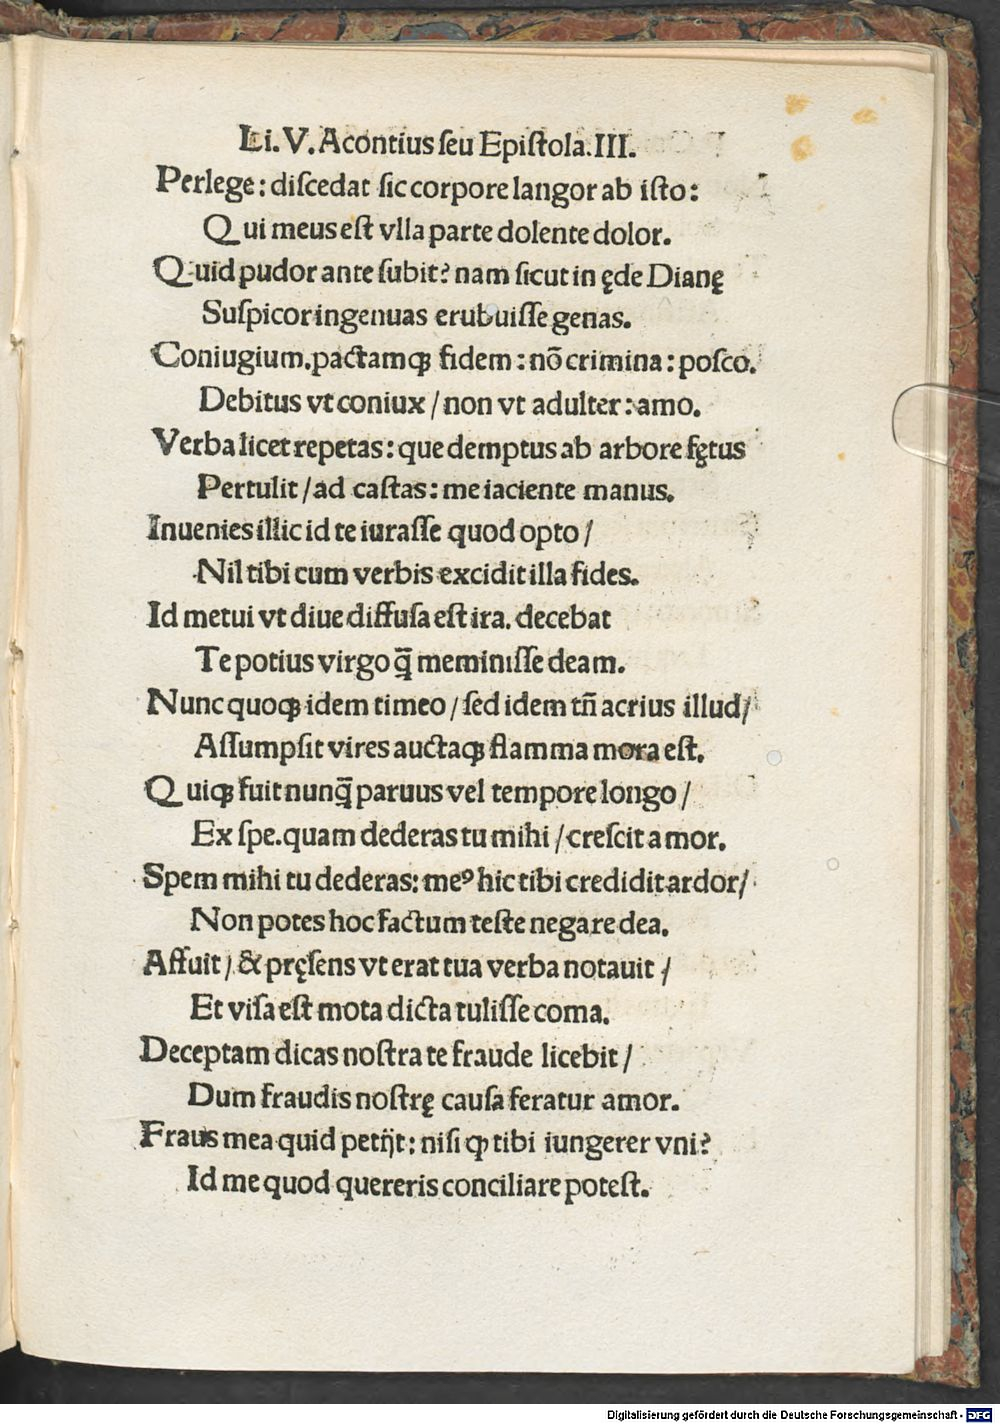 Li. V. Acontius ſeu Epiſtola. III.
Perlege: diſcedat ſic corpore langor ab iſto:
Qui meus eſt vlla parte dolente dolor.
Quid pudor ante ſubit? nam ſicut in ęde Dianę
Suſpicor ingenuas erubuiſſe genas.
Coniugium. pactamqꝫ fidem: nō crimina: poſco.
Debitus vt coniux / non vt adulter: amo.
Verba licet repetas: que demptus ab arbore fętus
Pertulit / ad caſtas: me iaciente manus.
Inuenies illic id te iuraſſe quod opto /
Nil tibi cum verbis excidit illa fides.
Id metui vt diue diffuſa eſt ira. decebat
Te potius virgo q̄ meminiſſe deam.
Nunc quoqꝫ idem timeo / ſed idem tn̄ acrius illud /
Aſſumpſit vires auctaqꝫ flamma mora eſt.
Quiqꝫ fuit nunq̄ paruus vel tempore longo /
Ex ſpe. quam dederas tu mihi / creſcit amor.
Spem mihi tu dederas: meꝰ hic tibi credidit ardor /
Non potes hoc factum teſte negare dea.
Affuit / & pręſens vt erat tua verba notauit /
Et viſa eſt mota dicta tuliſſe coma.
Deceptam dicas noſtra te fraude licebit /
Dum fraudis noſtrę cauſa feratur amor.
Fraus mea quid petijt: niſi ꝙ tibi iungerer vni?
Id me quod quereris conciliare poteſt.
Digitalisierung gefördert durch die Deutsche Forschungsgemeinschaft - DFG